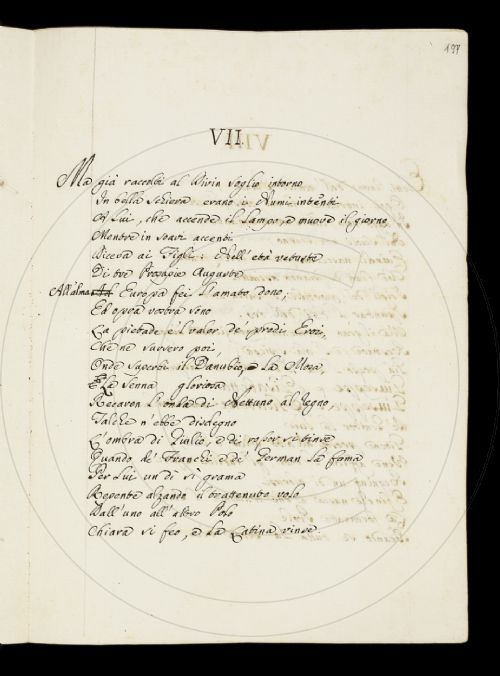 197
VII.
Ma già raccolti al Divin Soglio intorno
In bella Schiera erano i Numi intenti
A Lui, che accende il Lampo, e muove il giorno
Mentre in soavi accenti
Diceva ai Figli: Nell' età vetuste
Di tre Prosapie Auguste
All'alma Europa fei l'amato dono,
Ed opra vostra sono
La pietade e 'l valor de' prodi Eroi,
Che ne sursero poi,
Onde superbi il Danubio, e la Mosa,
E La Senna gloriosa
Recaron l'onda di Nettuno al Regno,
Talche n'ebbe disdegno
L'ombra di Giulio, e di rossor si tinse
Quando de' Franchi e de' German la fama
Per Lui un dì sì grama
Repente alzando il trattenuto volo
Dall'uno all'altro Polo
Chiara si feo, e la Latina vinse.